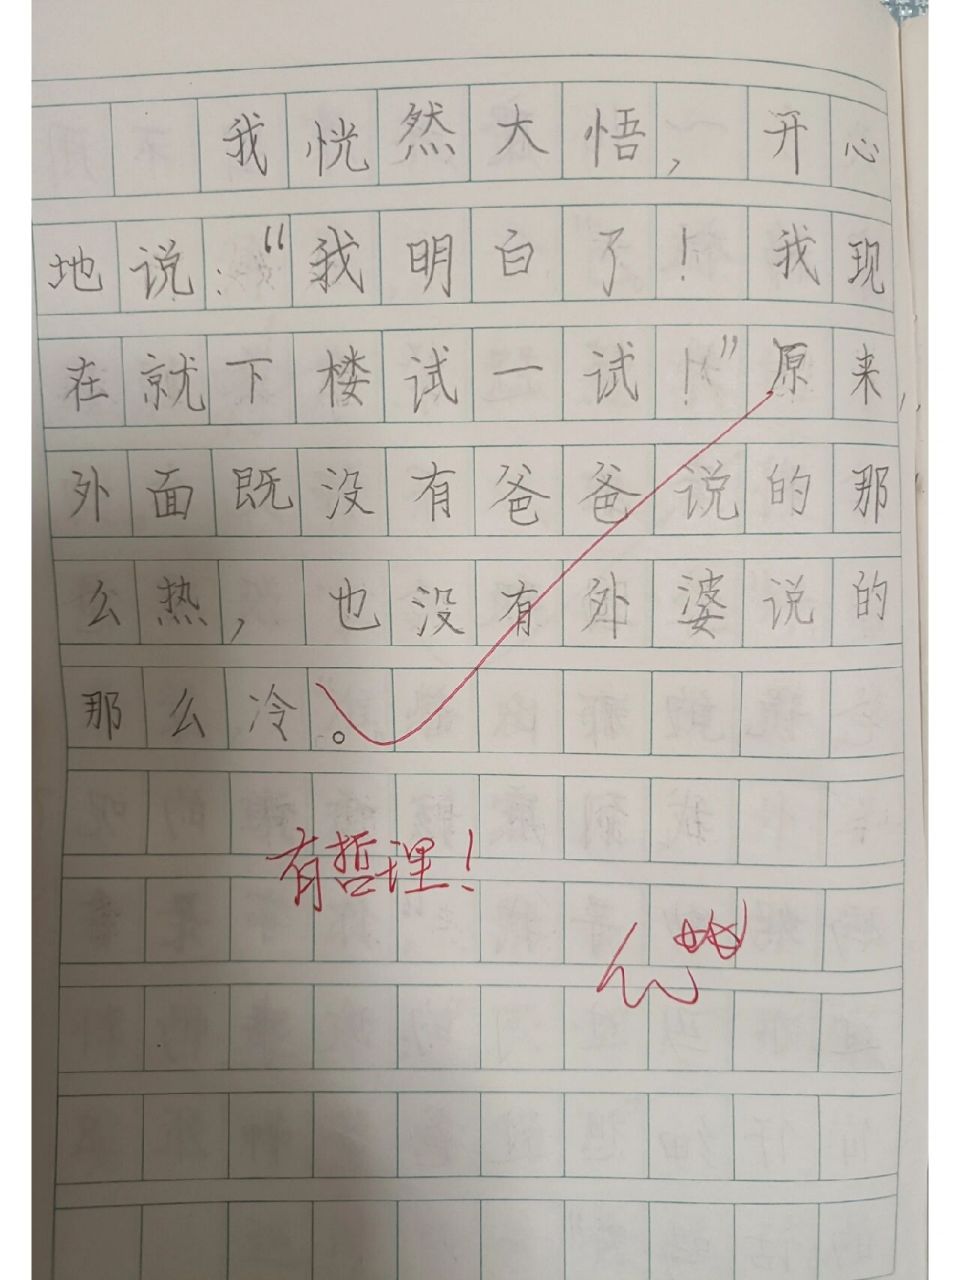 我恍然大悟，开心
地说：“我明白了！我现
在就下楼试一试！”原来，
外面既没有爸爸说的那
么热，也没有外婆说的
那么冷。
有哲理！